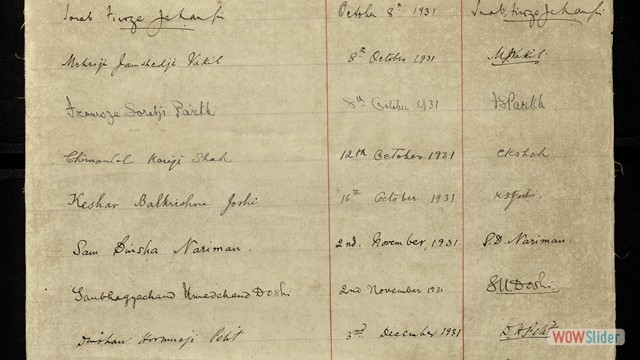 Sorab Firoze Jehangir October 8th 1931 Sorab Firoze Jehangir
Mehrji Jamshedji Vakil 8th October 1931 MJVakil.
Framroze Sorabji Parekh 8th October 1931 FSParekh.
Chimanlal Karsji Shah 12th October 1931 ckshah
Keshav Balkrishna Joshi 16th October 1931
Sam Dinsha Nariman. 2nd. November, 1931. S.D. Nariman.
Saubhagyachand Umedchand Doshi 2nd November 1931 SUDoshi.
Dinshaw Hormusji Petit 3rd December 1931 D.H.Petit
WOWSlider